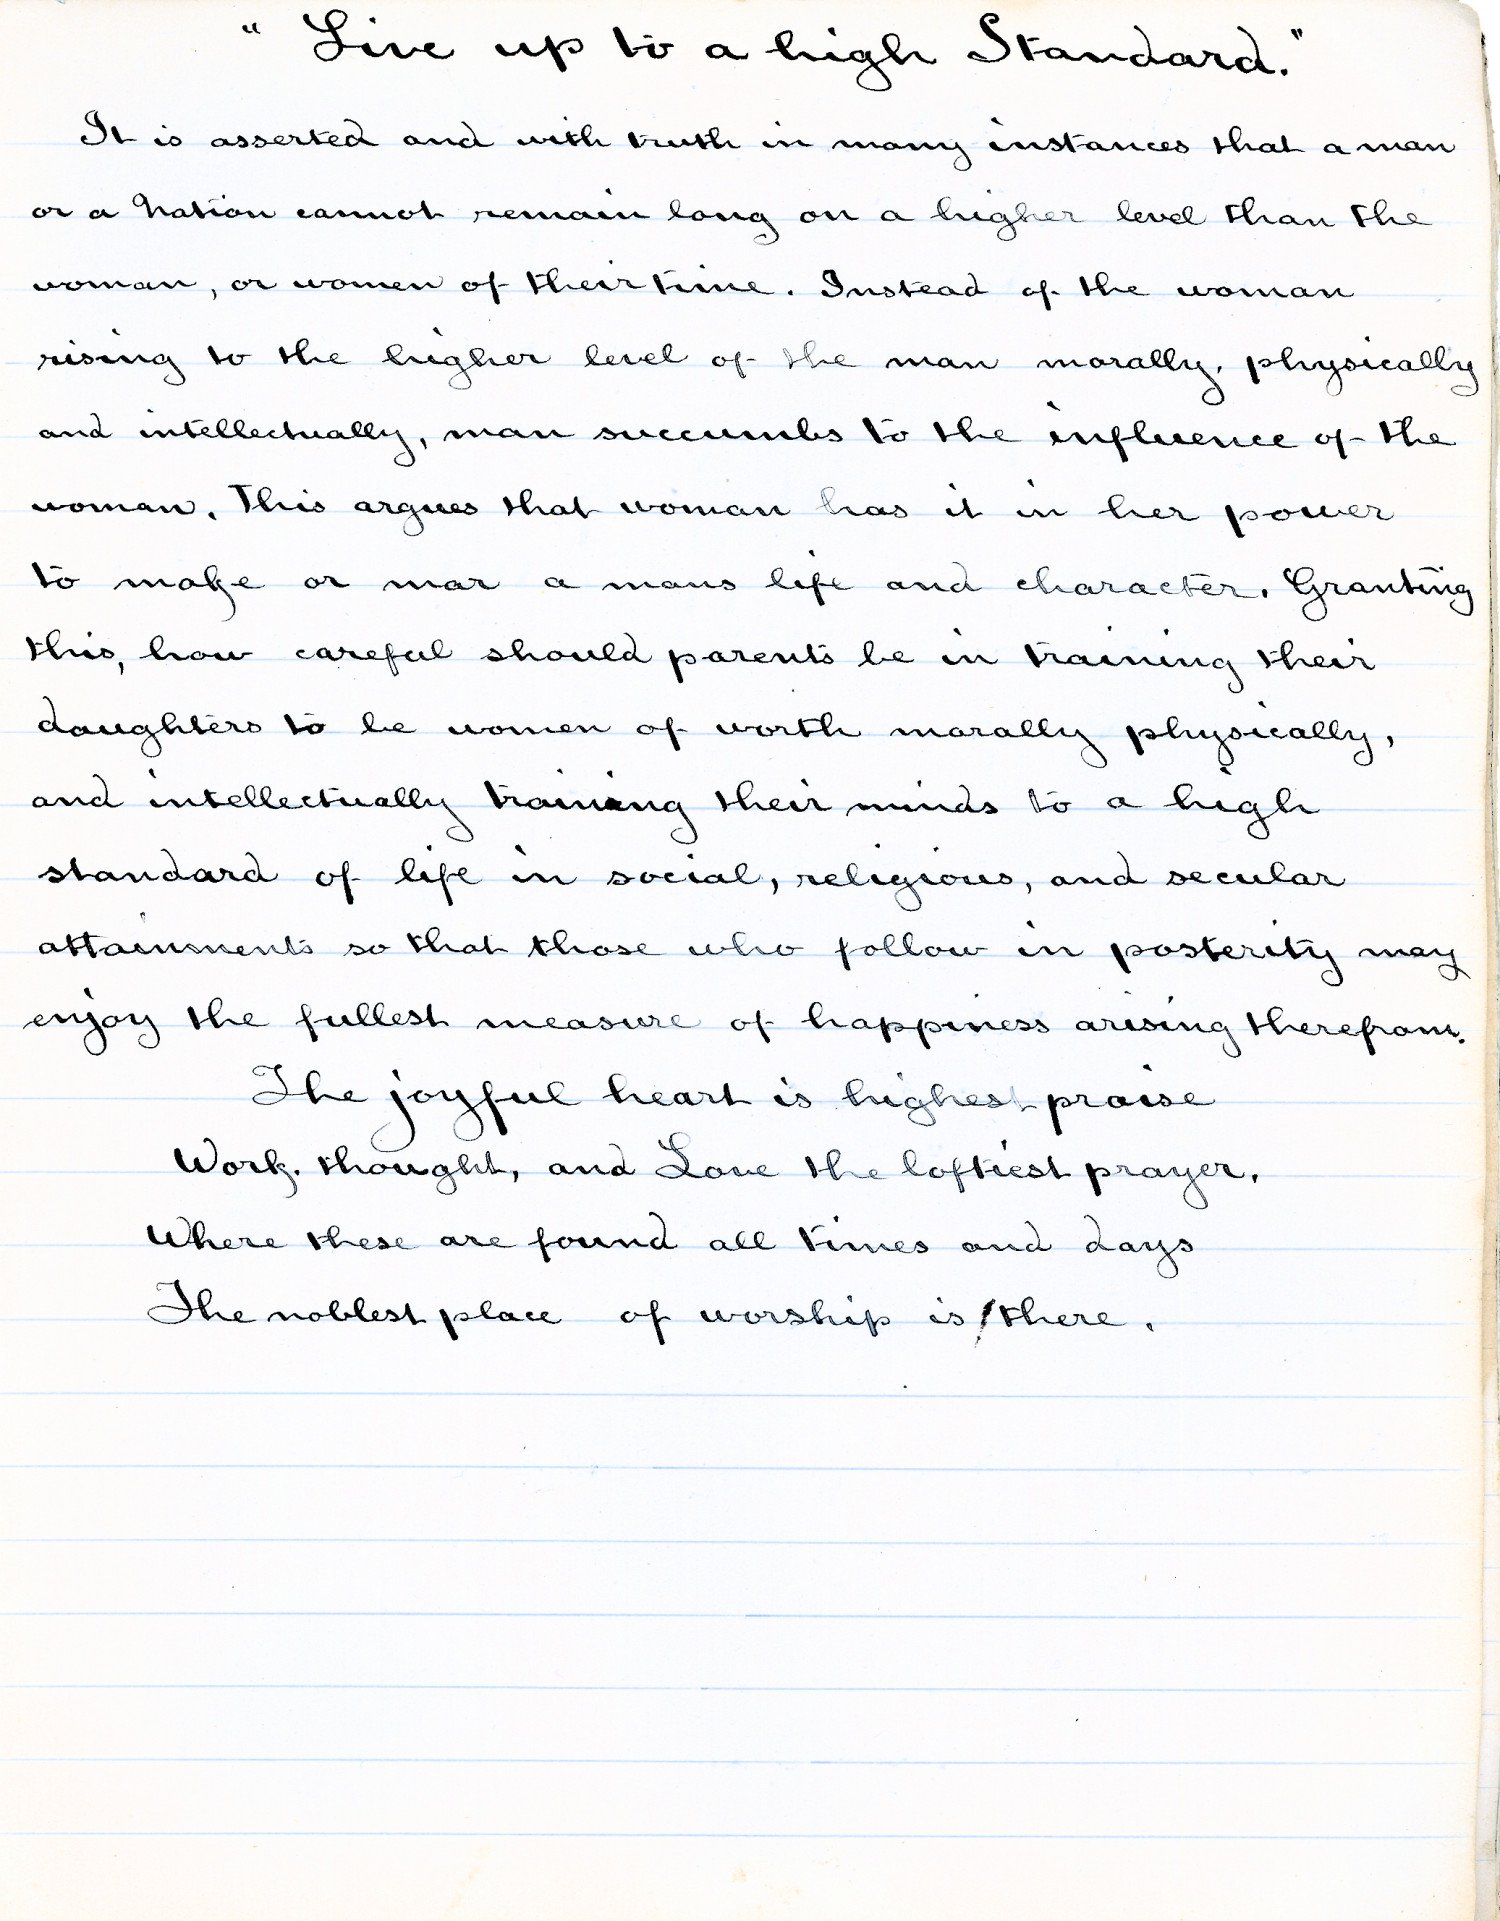 " Live up to a high Standard."
It is asserted and with truth in many instances that a man
or a Nation cannot remain long on a higher level than the
woman, or women of their time. Instead of the woman
rising to the higher level of the man morally, physically
and intellectually, man succumbs to the influence of the
woman. This argues that woman has it in her power
to make or mar a mans life and character. Granting
this, how careful should parents be in training their
daughters to be women of worth morally physically,
and intellectually training their minds to a high
standard of life in social, religious, and secular
attainments so that those who follow in posterity may
enjoy the fullest measure of happiness arising therefrom.
The joyful heart is highest praise
Work. thought, and Love the loftiest prayer.
Where these are found all times and days
The noblest place of worship is / there.